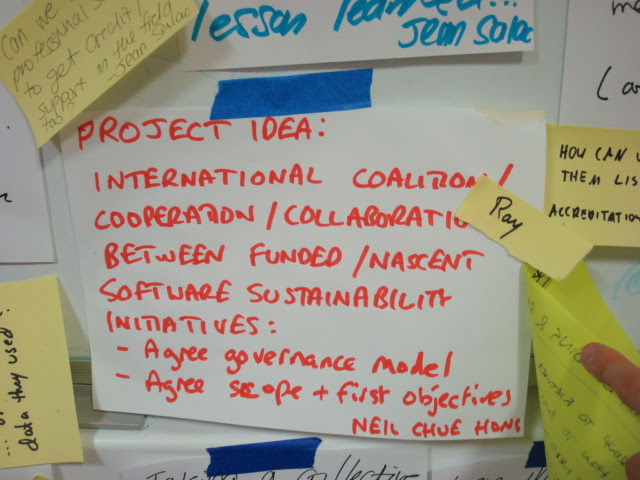 Can we
professional
to get credit/
support in the field
lesson learned...
Jenn Schac
PROJECT IDEA:
INTERNATIONAL COALITION/
COOPERATION/COLLABORATIO
BETWEEN FUNDED/NASCENT
SOFTWARE SUSTAINABILITY
INITIATIVES:
- Agree governance model
- Agree scope + first objectives
NEIL CHUE HONG
Ray
HOW CAN
THEM LIS
ACCREDITATION
data they used?
a collective